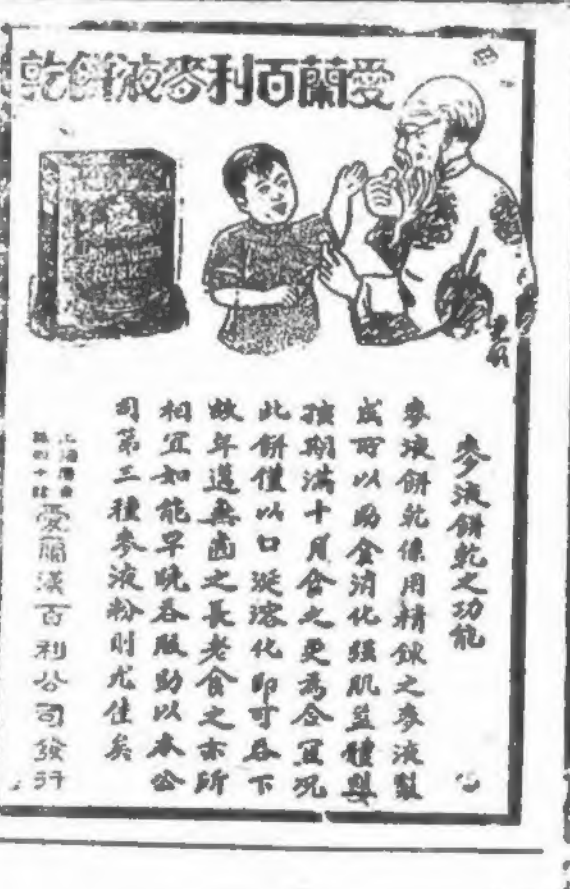 愛蘭百利麥液餅乾
RUSKS
麥液餅乾之功能
麥液餅乾係用精錬之麥液製
成所以助食消化強肌益體嬰
孩期滿十月食之更為合宜况
此餅僅以口涎溶化即可吞下
故年邁無齒之長老食之亦所
相宜如能早晚吞服助以本公
司第三種麥液粉則尤佳矣
上海
愛蘭漢百利公司發行